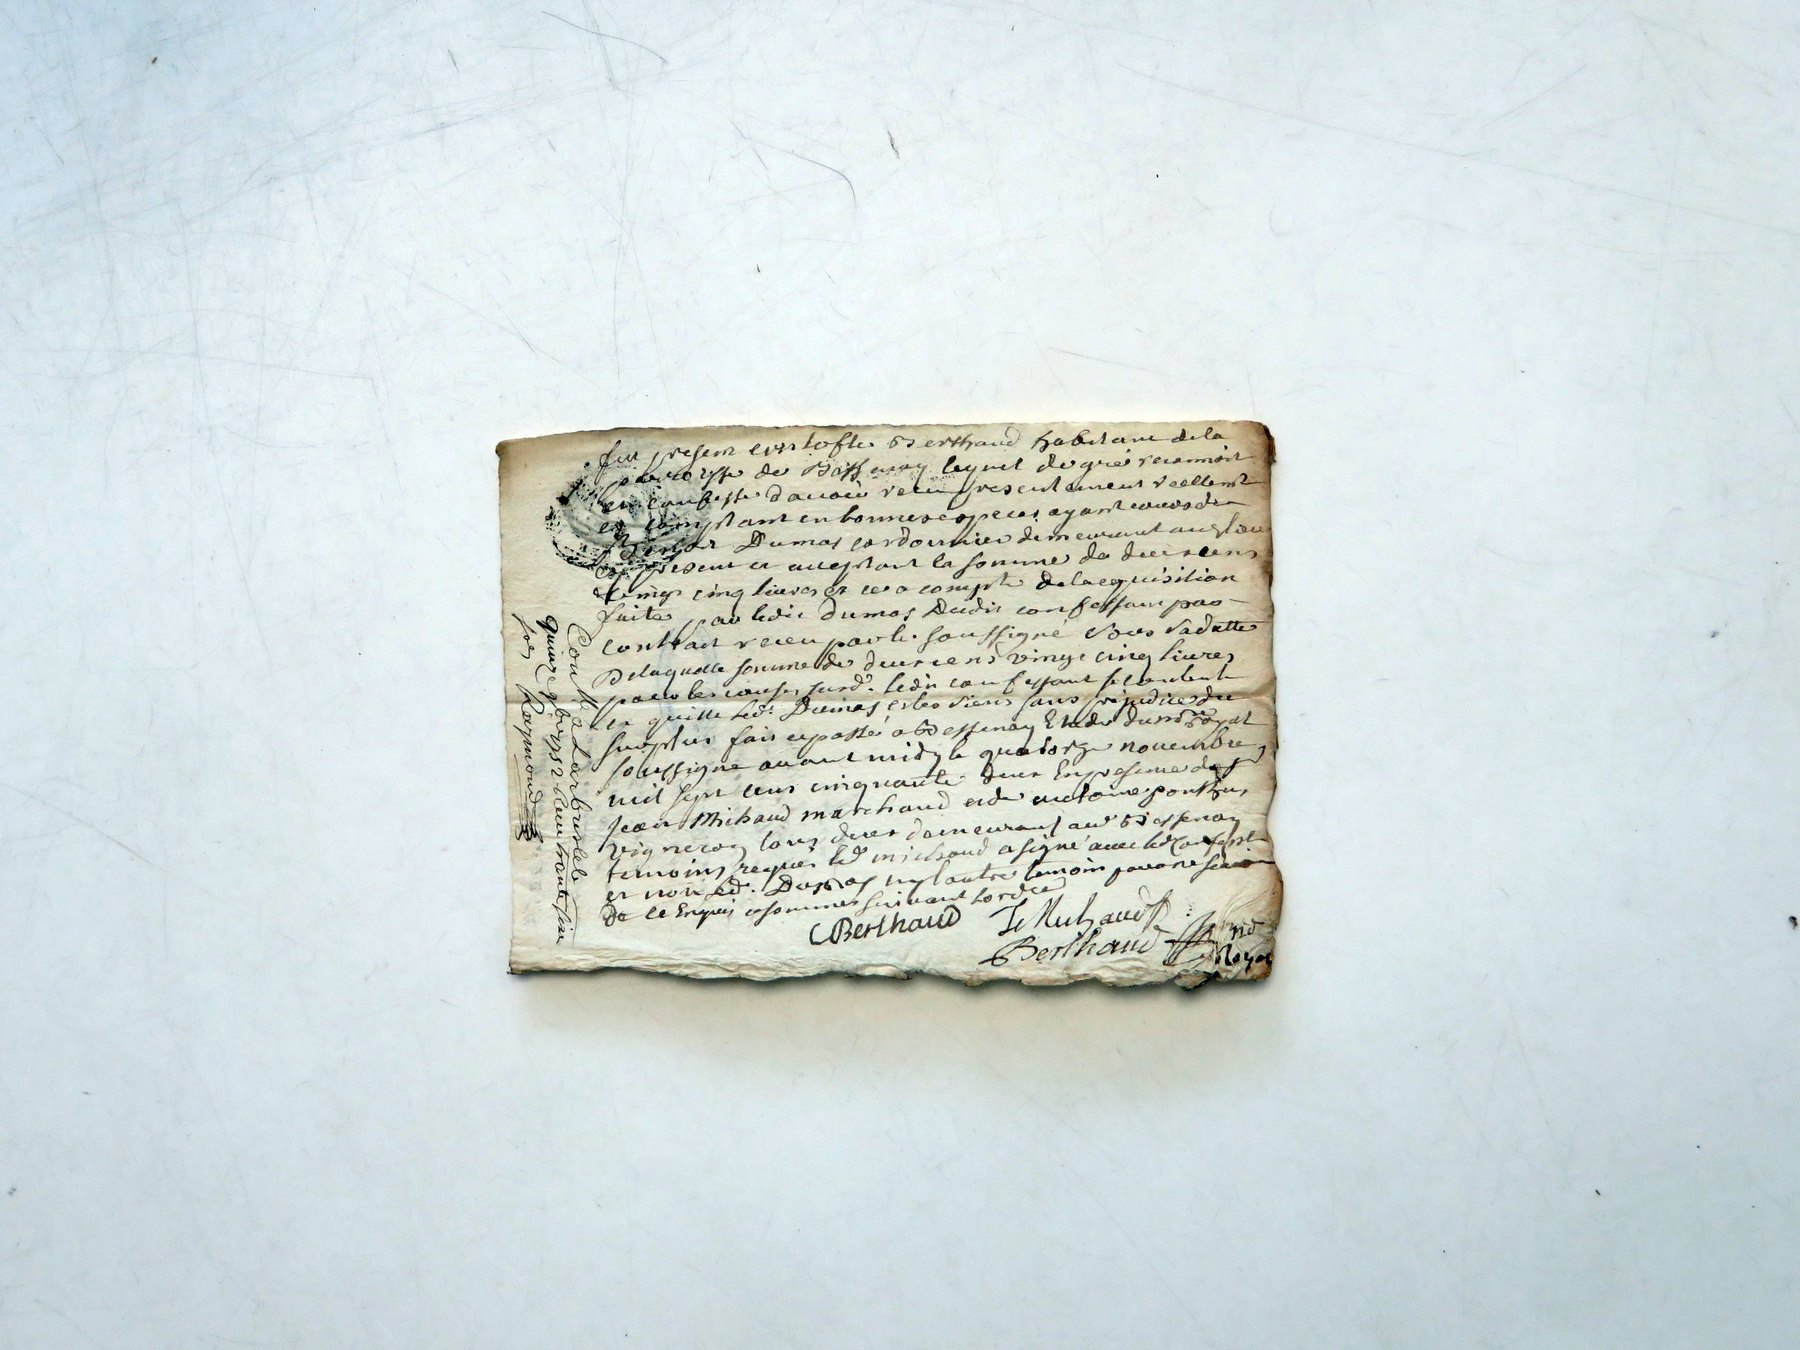 fut present cristofle Berthaud habitant de la
parroisse de Bessenay lequel de gré reconnoit
et confesse d'avoir receu presentement reellemt
et comptant en bonnes especes ayant cours de
Dumas cordonnier demeurant audt lieu
cy present et acceptant la somme de deux cens
vingt cinq livres et ce a compte de lacquisition
faite par ledit Dumas dudit confessant par
contract receu par le soussigné sous sa datte
De laquelle somme de deux cens vingt cinq livres
pour les causes susd. ledit confessant se contente
et quitte led. Dumas et les siens sans prejudice du
surplus fait et passé a Bessenay Etude du nre royal
soussigné avant midy le quatorze novembre
mil sept cens cinquante deux En presence de sr
Jean Michaud marchand et de antoine ponthus
vigneron tous deux demeurant aud Bessenay
temoins requis led michaud a signé avec led confesst
et non led. Dumas ny lautre temoin pour ne scavoir
de ce Enquis et sommes suivant lordce
CBerthaud J Michaud
Berthaud nre
Royal
Conllé a Larbresle le
quinze 9bre 1752 Receu trente six
sols Raymond